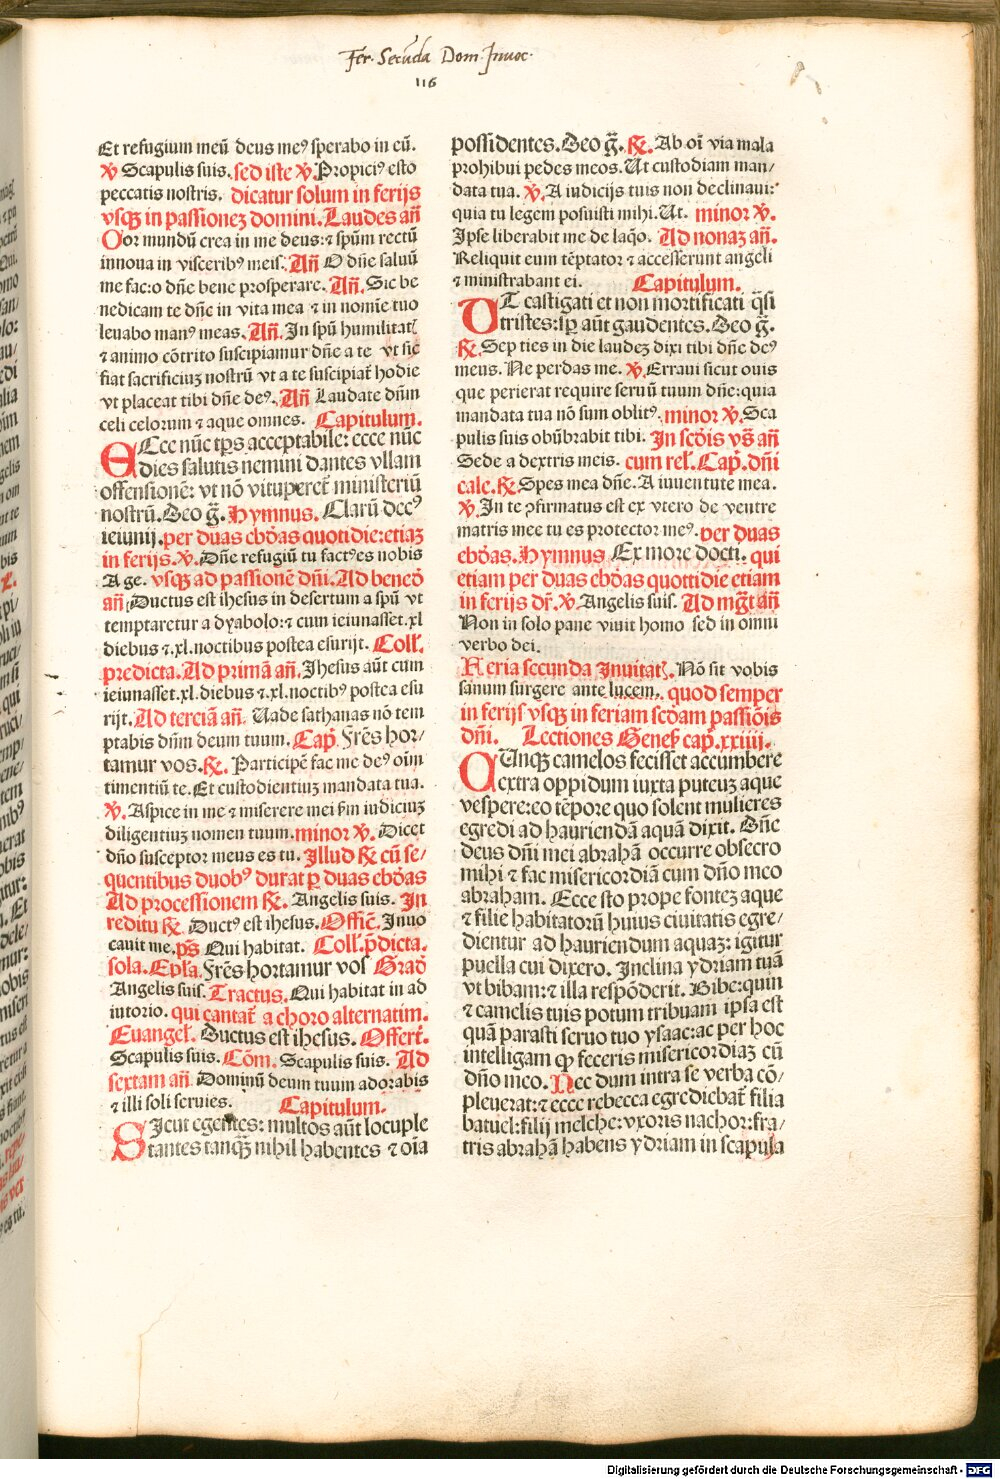 Fer. Secūda Dom. Inuoc.
116
Et refugium meū deus meꝰ sperabo in eū.
℣ Scapulis suis. sed iste ℣. Propiciꝰ esto
peccatis nostris. dicatur solum in ferijs
vsqꝫ in passioneꝫ domini. Laudes añ
Cor mundū crea in me deus: ⁊ spūm rectū
innoua in visceribꝰ meis. Añ O dñe saluū
me fac: o dñe bene prosperare. Añ. Sic be
nedicam te dñe in vita mea ⁊ in noīne tuo
leuabo manꝰ meas. Añ. In spū humilitatꝭ
⁊ animo cōtrito suscipiamur dñe a te vt sic
fiat sacrificiuꝫ nostrū vt a te suscipiat̄ hodie
vt placeat tibi dñe deꝰ. Añ Laudate dñm
celi celorum ⁊ aque omnes. Capitulum.
ECce nūc tꝑs acceptabile: ecce nūc
dies salutis nemini dantes vllam
offensionē: vt nō vituperet̄ ministeriū
nostrū. Deo g̃. Hymnus. Clarū decꝰ
ieiunij. per duas ebd̄as quotidie: etiaꝫ
in ferijs. ℣. Dñe refugiū tu factꝰ es nobis
A ge. vsqꝫ ad passionē dñi. Ad bened̄
añ Ductus est ihesus in desertum a spū vt
temptaretur a dyabolo: ⁊ cum ieiunasset .xl
diebus ⁊ .xl. noctibus postea esurijt. Coll̄.
predicta. Ad primā añ. Ihesus aūt cum
ieiunasset .xl. diebus ⁊ .xl. noctibꝰ postea esu
rijt. Ad terciā añ. Uade sathanas nō tem
ptabis dñm deum tuum. Cap̄. Frēs hor/
tamur vos. ℟. Participē fac me deꝰ oīm
timentiū te. Et custodientiuꝫ mandata tua.
℣. Aspice in me ⁊ miserere mei s̄m iudiciuꝫ
diligentiuꝫ nomen tuum. minor ℣. Dicet
dño susceptor meus es tu. Illud ℟ cū se/
quentibus duobꝰ durat ꝑ duas ebd̄as
Ad processionem ℟. Angelis suis. In
reditu ℟ Ductꝰ est ihesus. Officī. Inuo
cauit me. pš Qui habitat. Coll̄. p̄dicta.
sola. Epl̄a. Frēs hortamur vos Grad̄
Angelis suis. Tractus. Qui habitat in ad
iutorio. qui cantat̄ a choro alternatim.
Euangel̄. Ductus est ihesus. Offert̄.
Scapulis suis. Cōm. Scapulis suis. Ad
sextam añ. Dominū deum tuum adorabis
⁊ illi soli seruies. Capitulum.
SIcut egentes: multos aūt locuple
tantes tanqꝫ nihil habentes ⁊ oīa
possidentes. Deo g̃. ℟. Ab oī via mala
prohibui pedes meos. Ut custodiam man/
data tua. ℣. A iudicijs tuis non declinaui:
quia tu legem posuisti mihi. Ut. minor ℣.
Ipse liberabit me de laq̄o. Ad nonaꝫ añ.
Reliquit eum tēptator ⁊ accesserunt angeli
⁊ ministrabant ei. Capitulum.
UT castigati et non mortificati q̄si
tristes: sꝑ aūt gaudentes. Deo g̃.
℟. Sep ties in die laudeꝫ dixi tibi dñe deꝰ
meus. Ne perdas me. ℣. Erraui sicut ouis
que perierat require seruū tuum dñe: quia
mandata tua nō sum oblitꝰ. minor ℣. Sca
pulis suis obūbrabit tibi. In scd̄is vs̄ añ
Sede a dextris meis. cum rel̄. Cap̄. dñi
cale. ℟. Spes mea dñe. A iuuentute mea.
℣. In te ꝯfirmatus est ex vtero de ventre
matris mee tu es protector meꝰ. per duas
ebd̄as. Hymnus Ex more docti. qui
etiam per duas ebd̄as quottidie etiam
in ferijs dr̄. ℣. Angelis suis. Ad mg̃t añ
Non in solo pane viuit homo sed in omni
verbo dei.
Feria secunda Inuitatꝭ. Nō sit vobis
vanum surgere ante lucem. quod semper
in ferijs vsqꝫ in feriam scd̄am passiōis
dñi. Lectiones Genes̄ cap̄. xxiiij.
CUnqꝫ camelos fecisset accumbere
extra oppidum iuxta puteuꝫ aque
vespere: eo tēpore quo solent mulieres
egredi ad hauriendā aquā dixit. Dñe
deus dñi mei abrahā occurre obsecro
mihi ⁊ fac misericordiā cum dño meo
abraham. Ecce sto prope fonteꝫ aque
⁊ filie habitatorū huius ciuitatis egre/
dientur ad hauriendum aquaꝫ: igitur
puella cui dixero. Inclina ydriam tuā
vt bibam: ⁊ illa respōderit. Bibe: quin
⁊ camelis tuis potum tribuam ipsa est
quā parasti seruo tuo ysaac: ac per hoc
intelligam ꝙ feceris misericordiaꝫ cū
dño meo. Nec dum intra se verba cō/
pleuerat: ⁊ ecce rebecca egrediebat̄ filia
batuel: filij melche: vxoris nachor: fra/
tris abrahā habens ydriam in scapula
Digitalisierung gefördert durch die Deutsche Forschungsgemeinschaft - DFG